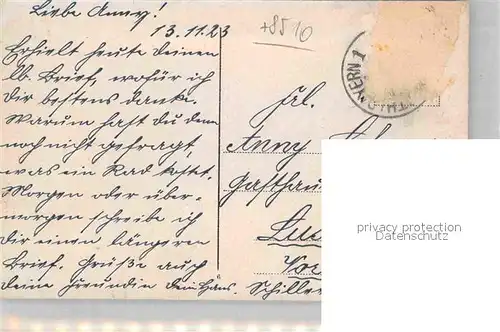 Liebe Anny!
13.11.23
+8510
Erhielt heute deinen
lb. Brief, wofür ich
dir bestens danke.
Warum hast du denn
noch nicht gefragt,
was ein Rad kostet.
Morgen oder über-
morgen schreibe ich
dir einen längeren
Brief. Grüße auch
deine Freundin dein Hans.
YERN 1
Frl.
Anny
Gasthau
Schiller
privacy protection
Datenschutz